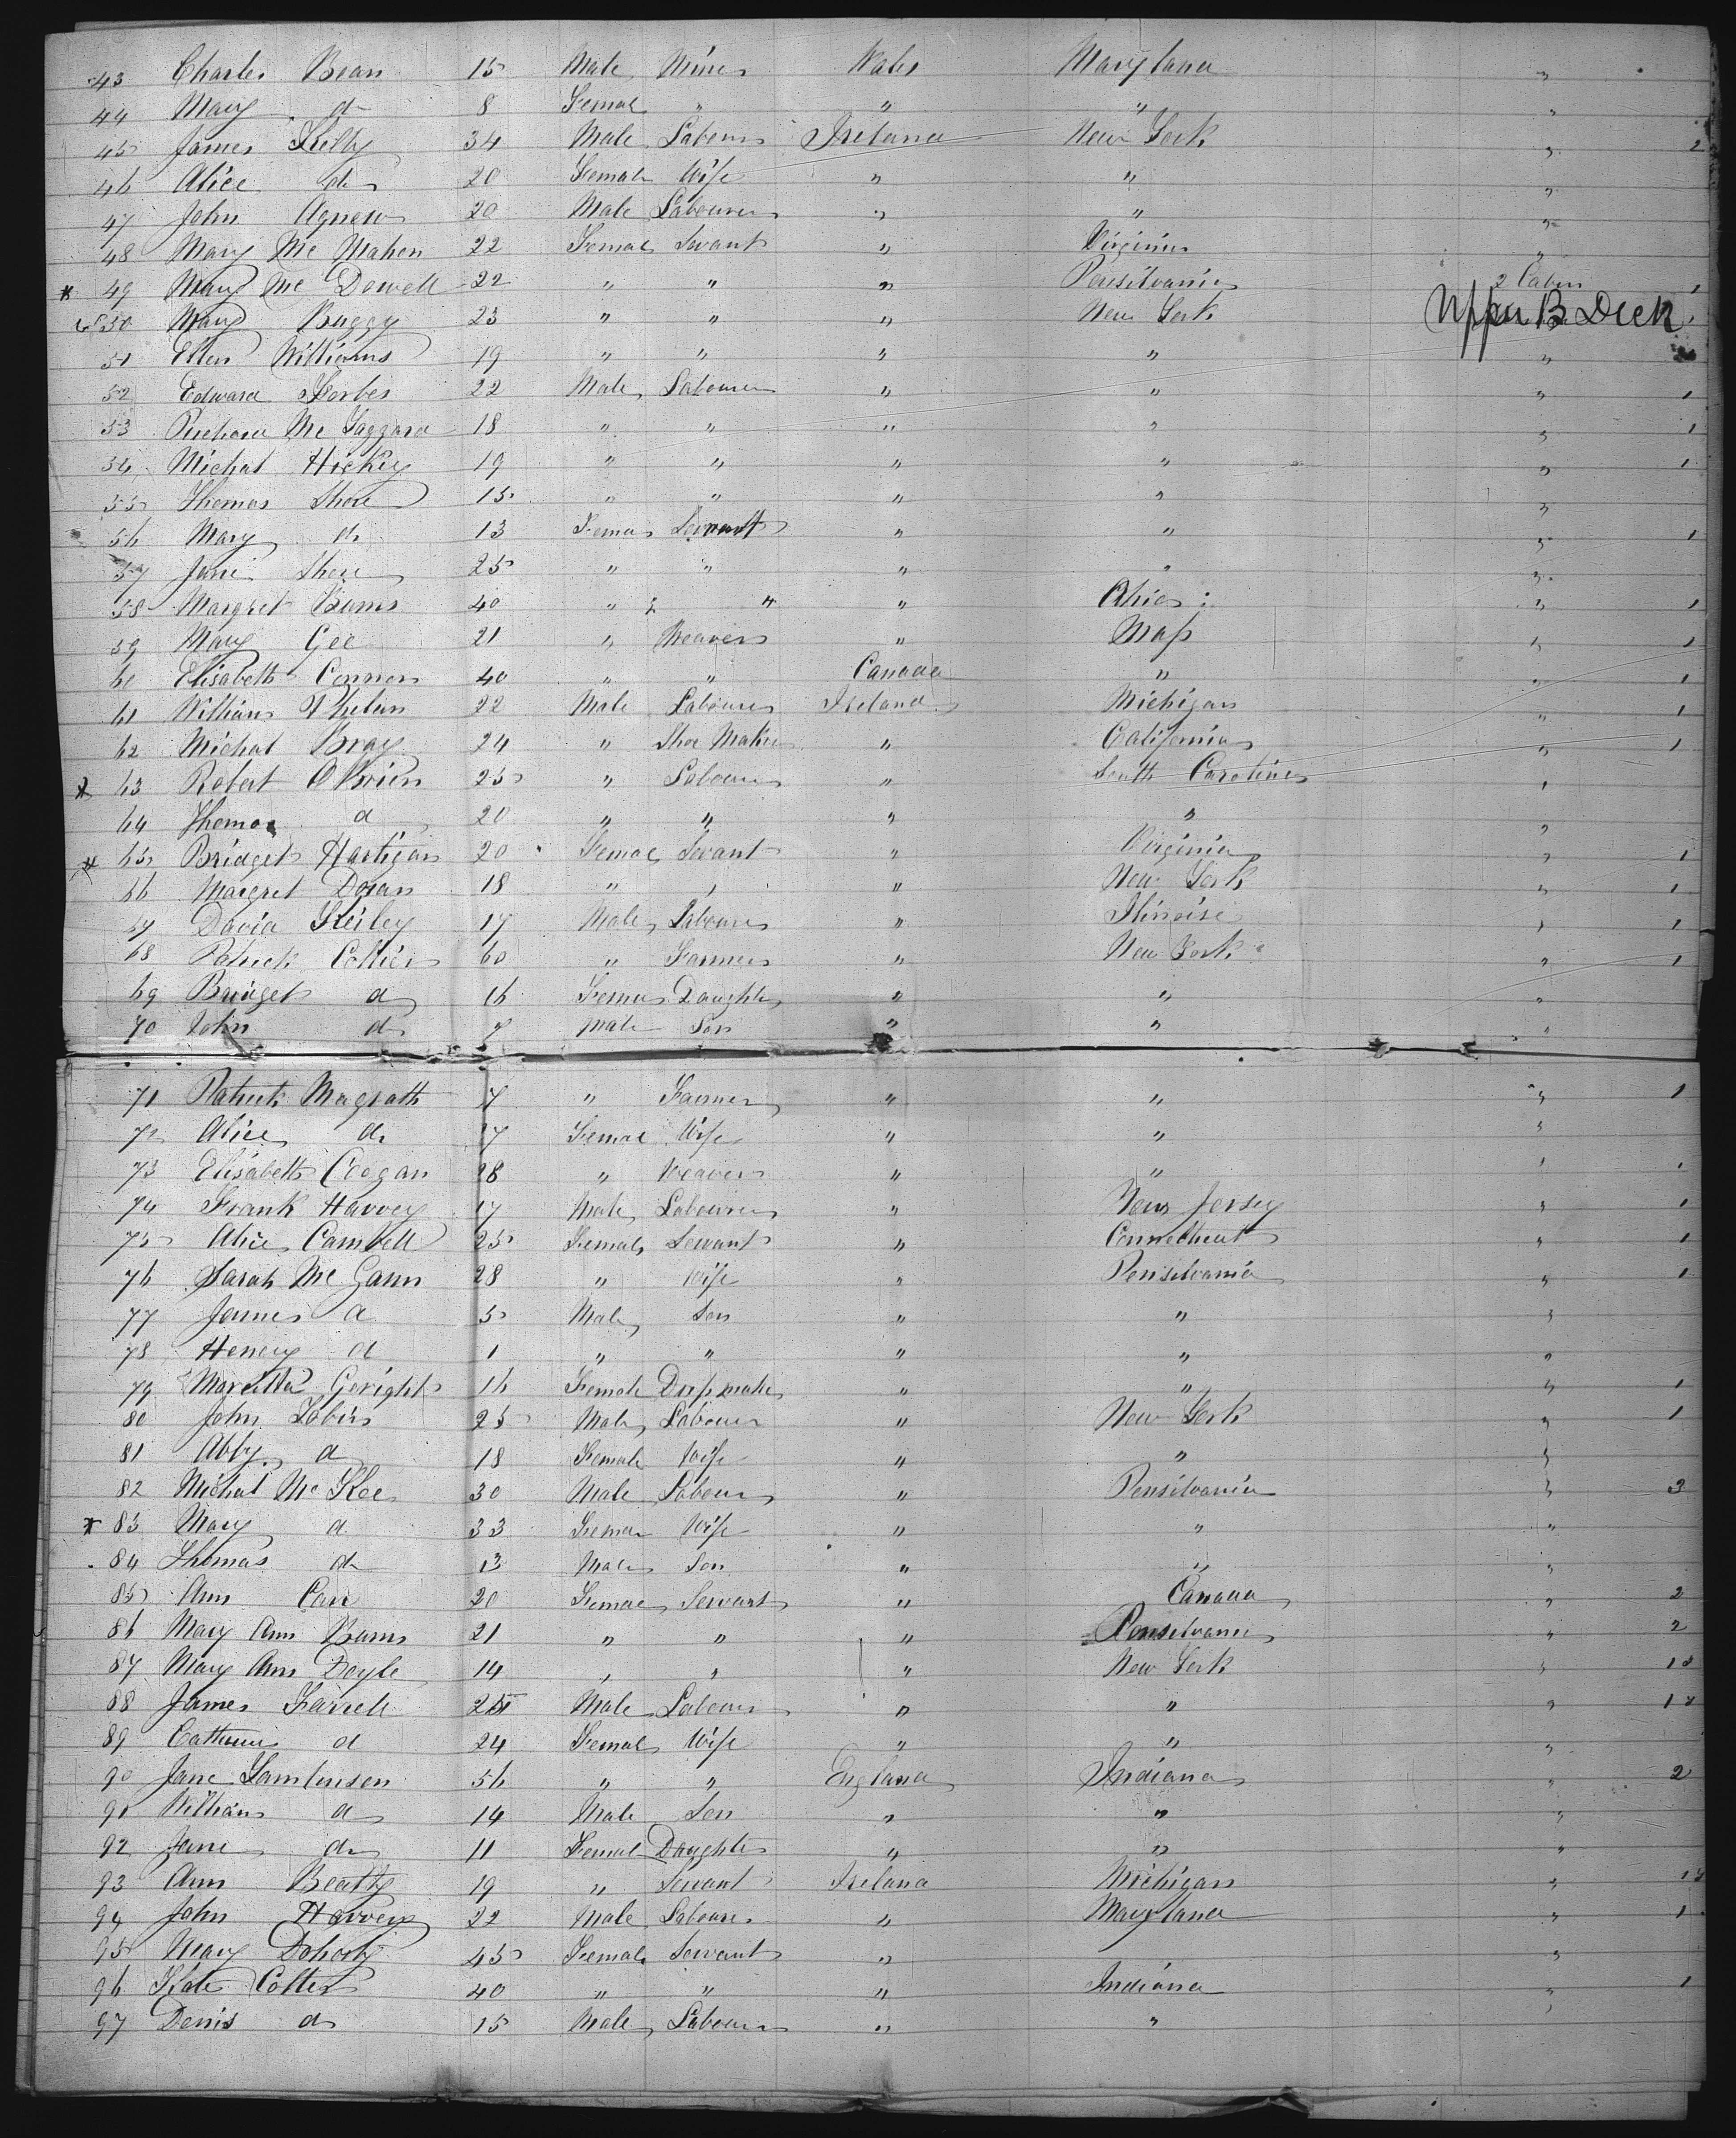 43 Charles Bean 15 Male Miner Wales Maryland "
44 Mary do 8 Femal " " " "
45 James Kelly 34 Male Labourer Ireland New York " 2
46 Alice do 20 Female Wife " " "
47 John Agnew 20 Male Labourer " " "
48 Mary Mc Mahon 22 Female Servant " Virginia "
* 49 Mary Mc Dowell 22 " " " Pensilvania 2 Cabin 1
50 Mary Buggy 23 " " " New York Upper B Deck
51 Ellen Williams 19 " " " " "
52 Edward Forbes 22 Male Labourer " " " 1
53 Richard Mc Taggard 18 " " " " " 1
54 Michal Hickey 19 " " " " " 1
55 Thomas Shore 15 " " " " "
56 Mary do 13 Female Servant " " " 1
57 Jane Shore 25 " " " " "
58 Margret Burns 40 " " " Ohio " 1
59 Mary Gee 21 " Weaver " Mass " 1
60 Elisabeth Connor 40 " " Canada " " 1
61 William Phelan 22 Male Labourer Ireland Michigan " 1
62 Michal Bray 24 " Shoe Maker " California " 1
* 63 Robert OBrien 25 " Labourer " South Carolina "
64 Thomas do 20 " " " " "
* 65 Bridget Hartigan 20 Female Servant " Virginia " 1
66 Margret Doran 18 " " " New York " 1
67 David Keiley 17 Male Labourer " Illinoise " 1
68 Patrick Collier 60 " Farmer " New York " 1
69 Bridget do 16 Female Daughter " " "
70 John do 7 Male Son " " "
71 Patrick Magrath " Farmer " " " 1
72 Alice do Female Wife " " "
73 Elisabeth Coogan 28 " Weaver " " " 1
74 Frank Harvey 17 Male Labourer " New Jersey " 1
75 Alice Cambell 25 Female Servant " Connecticut " 1
76 Sarah Mc Gann 28 " Wife " Pensilvania " 1
77 James do 5 Male Son " " "
78 Henery do 1 " " " " "
79 Goright 16 Female Dressmaker " " " 1
80 John Tobin 25 Male Labourer " New York " 1
81 Abby do 18 Female Wife " " "
82 Michal Mc Kee 30 Male Labourer " Pensilvania " 3
* 83 Mary do 33 Female Wife " " "
84 Thomas do 13 Male Son " " "
85 Ann Carr 20 Female Servant " Canada " 2
86 Mary Ann Burns 21 " " " Pensilvania " 2
87 Mary Ann Doyle 14 " " " New York "
88 James Farrell Male Labourer " " "
89 Catherine do 24 Female Wife " " "
90 Jane Tomlinson 56 " " England Indiana " 2
91 William do 14 Male Son " " "
92 Jane do 11 Female Daughter " " "
93 Ann Beatty 19 " Servant Ireland Michigan "
94 John Harvey 22 Male Labourer " Maryland " 1
95 Mary Dohorty 45 Female Servant " "
96 Kate Cotter 40 " " " Indiana " 1
97 Denis do 15 Male Labourer " " "